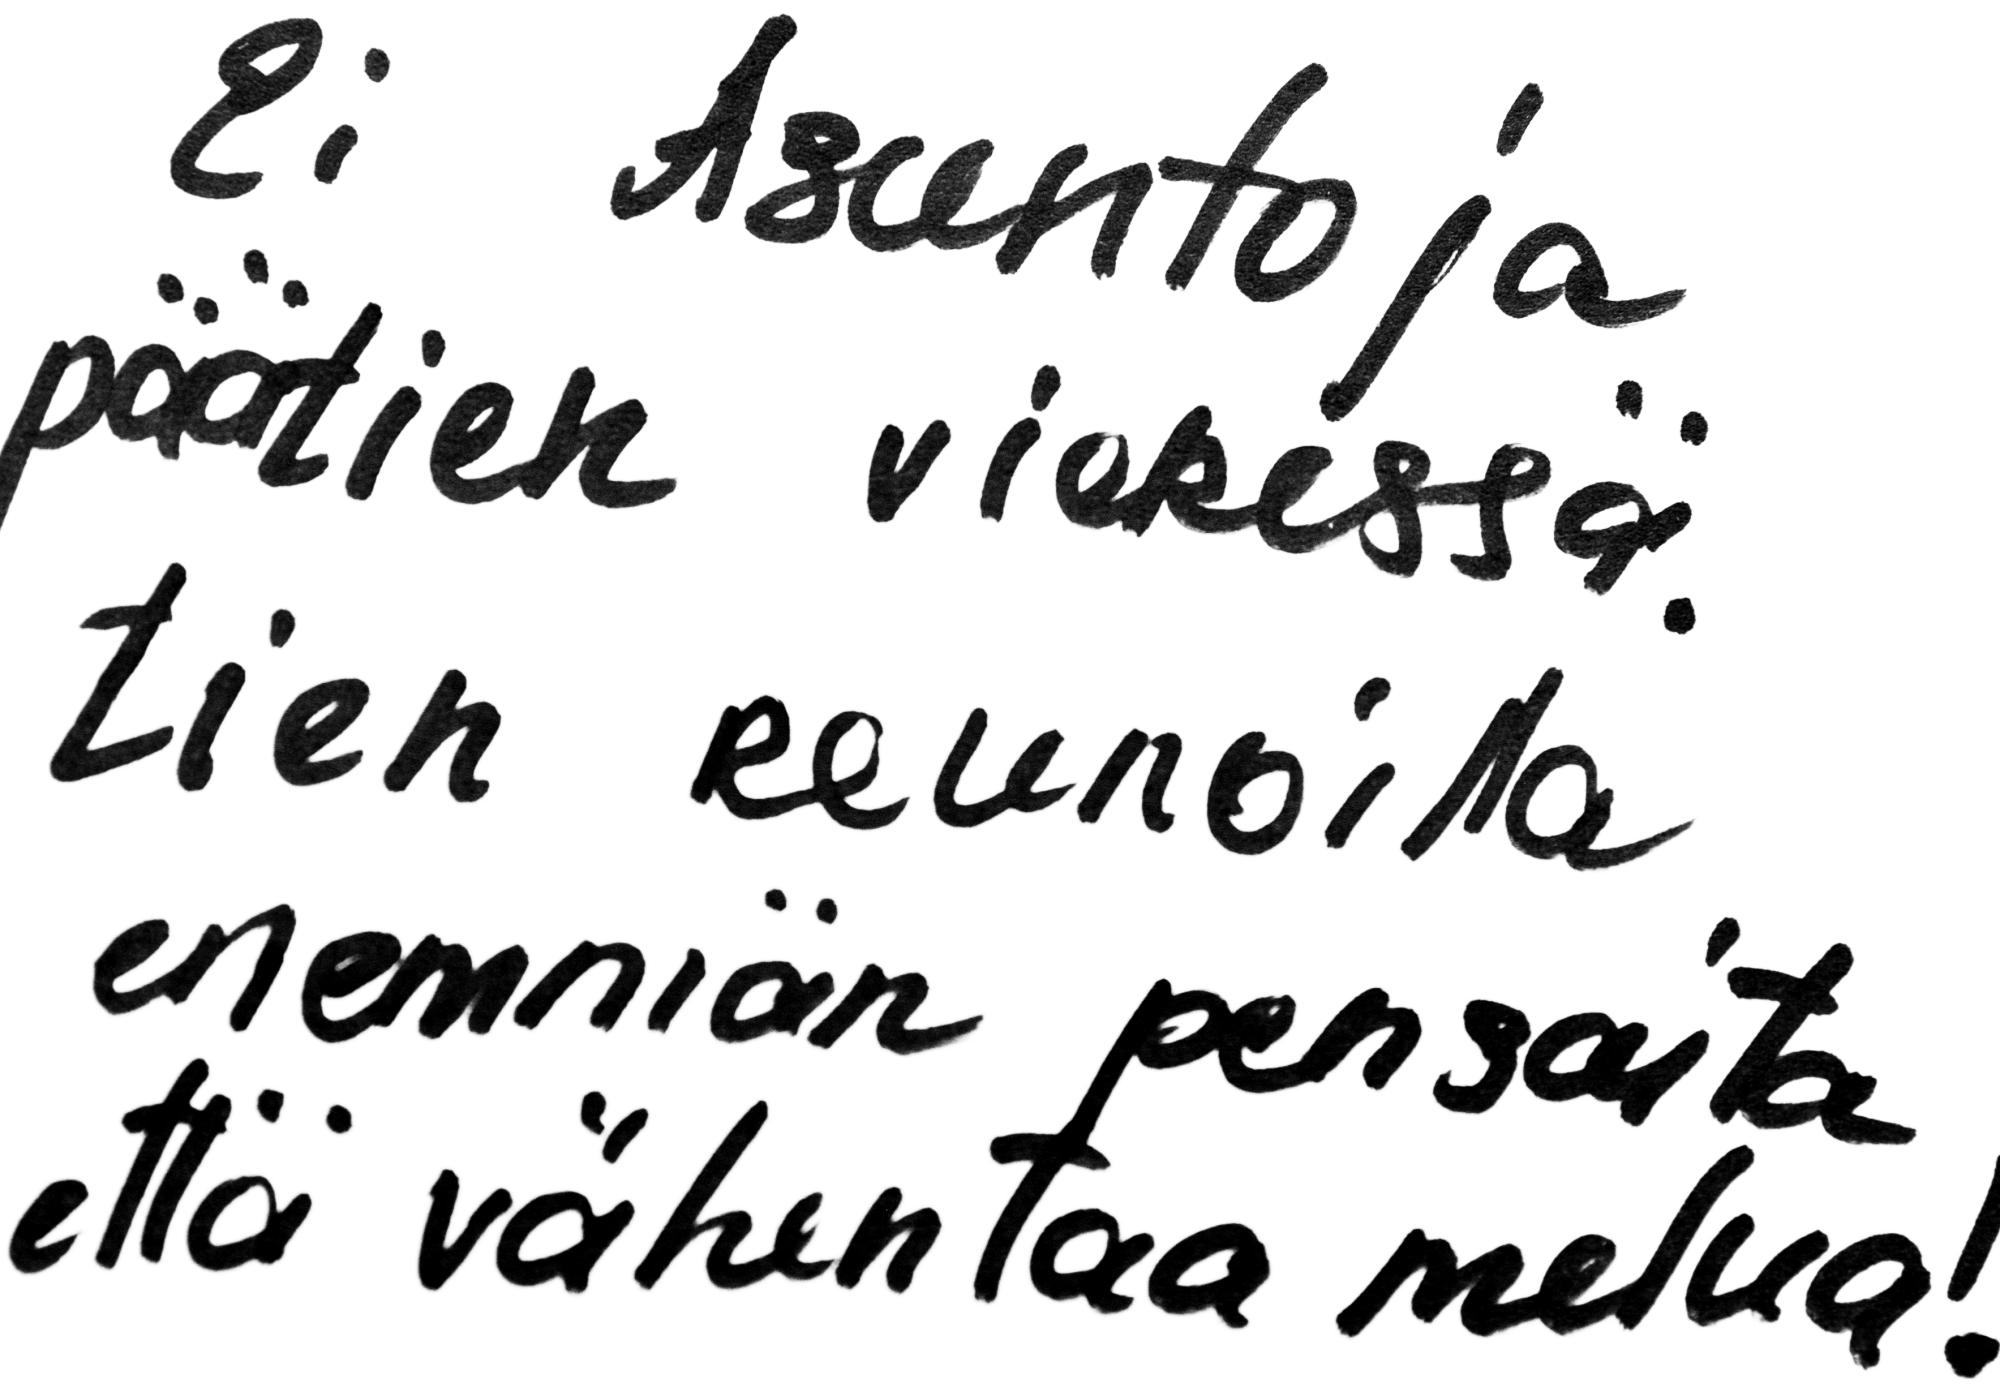 Ei Asuntoja
päätien viekessä.
tien reunoilla
enemniän pensaita
että vähentaa melua!